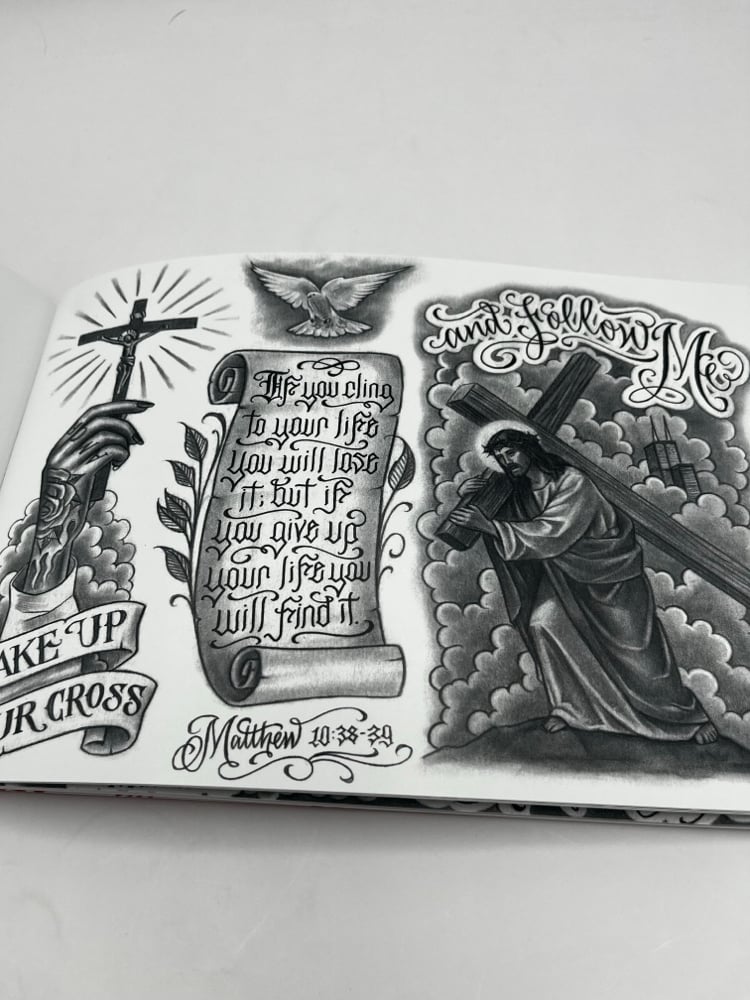 AKE UP
UR CROSS
If you cling
to your life
you will lose
it; but if
you give up
your life you
will find it.
Matthew 10:38-39
and follow Me